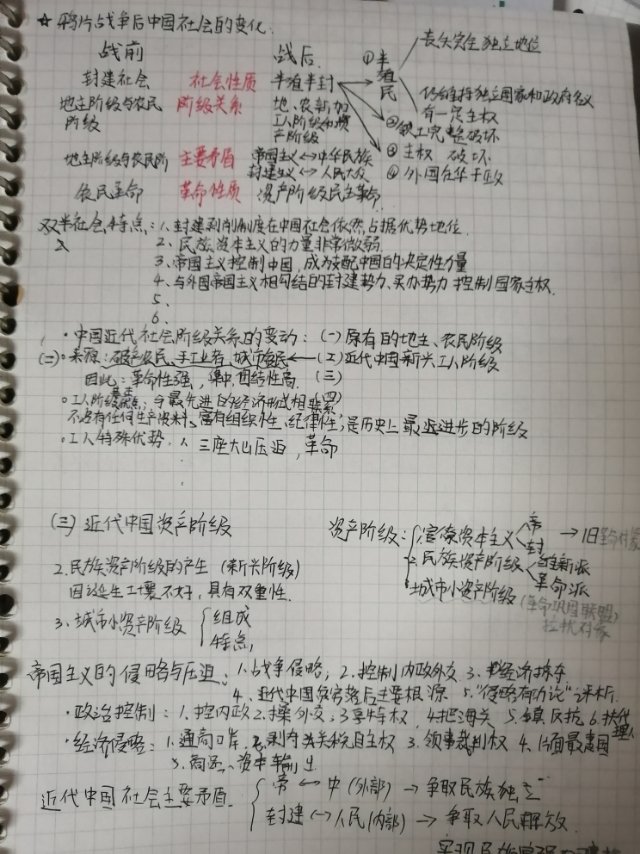 ☆ 鸦片战争后中国社会的变化.
战前 战后 ①半殖民 丧失完全独立地位
封建社会 社会性质 半殖半封 仍维持独立国家和政府名义
地主阶级与农民阶级 阶级关系 地、农新加工人阶级和资产阶级 有一定主权
②领土完整破坏
地主阶级与农民阶 主要矛盾 帝国主义↔中华民族 ③主权 破坏
封建主义↔人民大众 ④外国在华干政
农民革命 革命性质 资产阶级民主革命
双半社会特点:1、封建剥削制度在中国社会依然占据优势地位.
2、民族资本主义的力量非常微弱.
3、帝国主义控制中国,成为支配中国的决定性力量
4、与外国帝国主义相勾结的封建势力、买办势力控制国家主权.
5、
6、
·中国近代社会阶级关系的变动:(一)原有的地主、农民阶级
(二)·来源:破产农民、手工业者、城市贫民←(二)近代中国新兴工人阶级
因此:革命性强,集中,团结性高. (三)
·工人阶级 :与最先进的经济形式相联系 (四)
不占有任何生产资料、富有组织性、纪律性;是历史上最进步的阶级
·工人特殊优势:三座大山压迫,革命
(三)近代中国资产阶级
资产阶级:1.官僚资本主义 帝 封 →旧革命对象
2.民族资产阶级的产生(新兴阶级) 2.民族资产阶级 维新派 革命派
因诞生土壤不好,具有双重性. 城市小资产阶级(革命巩固联盟)
3、城市小资产阶级 组成 特点, 拉拢对象
帝国主义的侵略与压迫:1、战争侵略;2、控制内政外交 3、经济掠夺
4、近代中国贫穷落后主要根源 5、“侵略有功论”评析.
·政治控制:1、控内政 2、操外交;3享特权,4把海关 5、镇反抗 6.扶代理人
·经济侵略:1、通商口岸,2、剥夺关税自主权 3、领事裁判权 4、片面最惠国
3、商品、资本输出
近代中国社会主要矛盾. 帝↔中(外部)→争取民族独立
封建↔人民(内部)→争取人民解放.